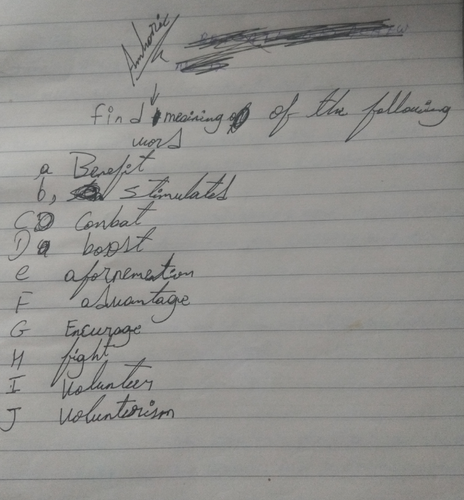 Amharic
find meaining of the following
word
a Benefit
b, stimulated
C Combat
D boost
e afornemention
F advantage
G Encurage
H fight
I volunteer
J volunteurism